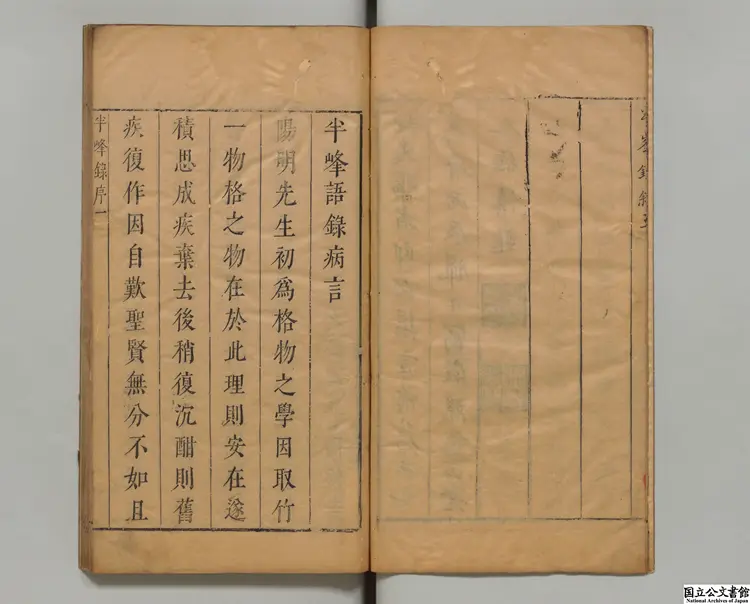 半峰語錄病言
陽明先生初爲格物之學因取竹
一物格之物在於此理則安在遂
積思成疾棄去後稍復沉酣則舊
疾復作因自歎聖賢無分不如且
半峰錄序一
国立公文書館
National Archives of Japan